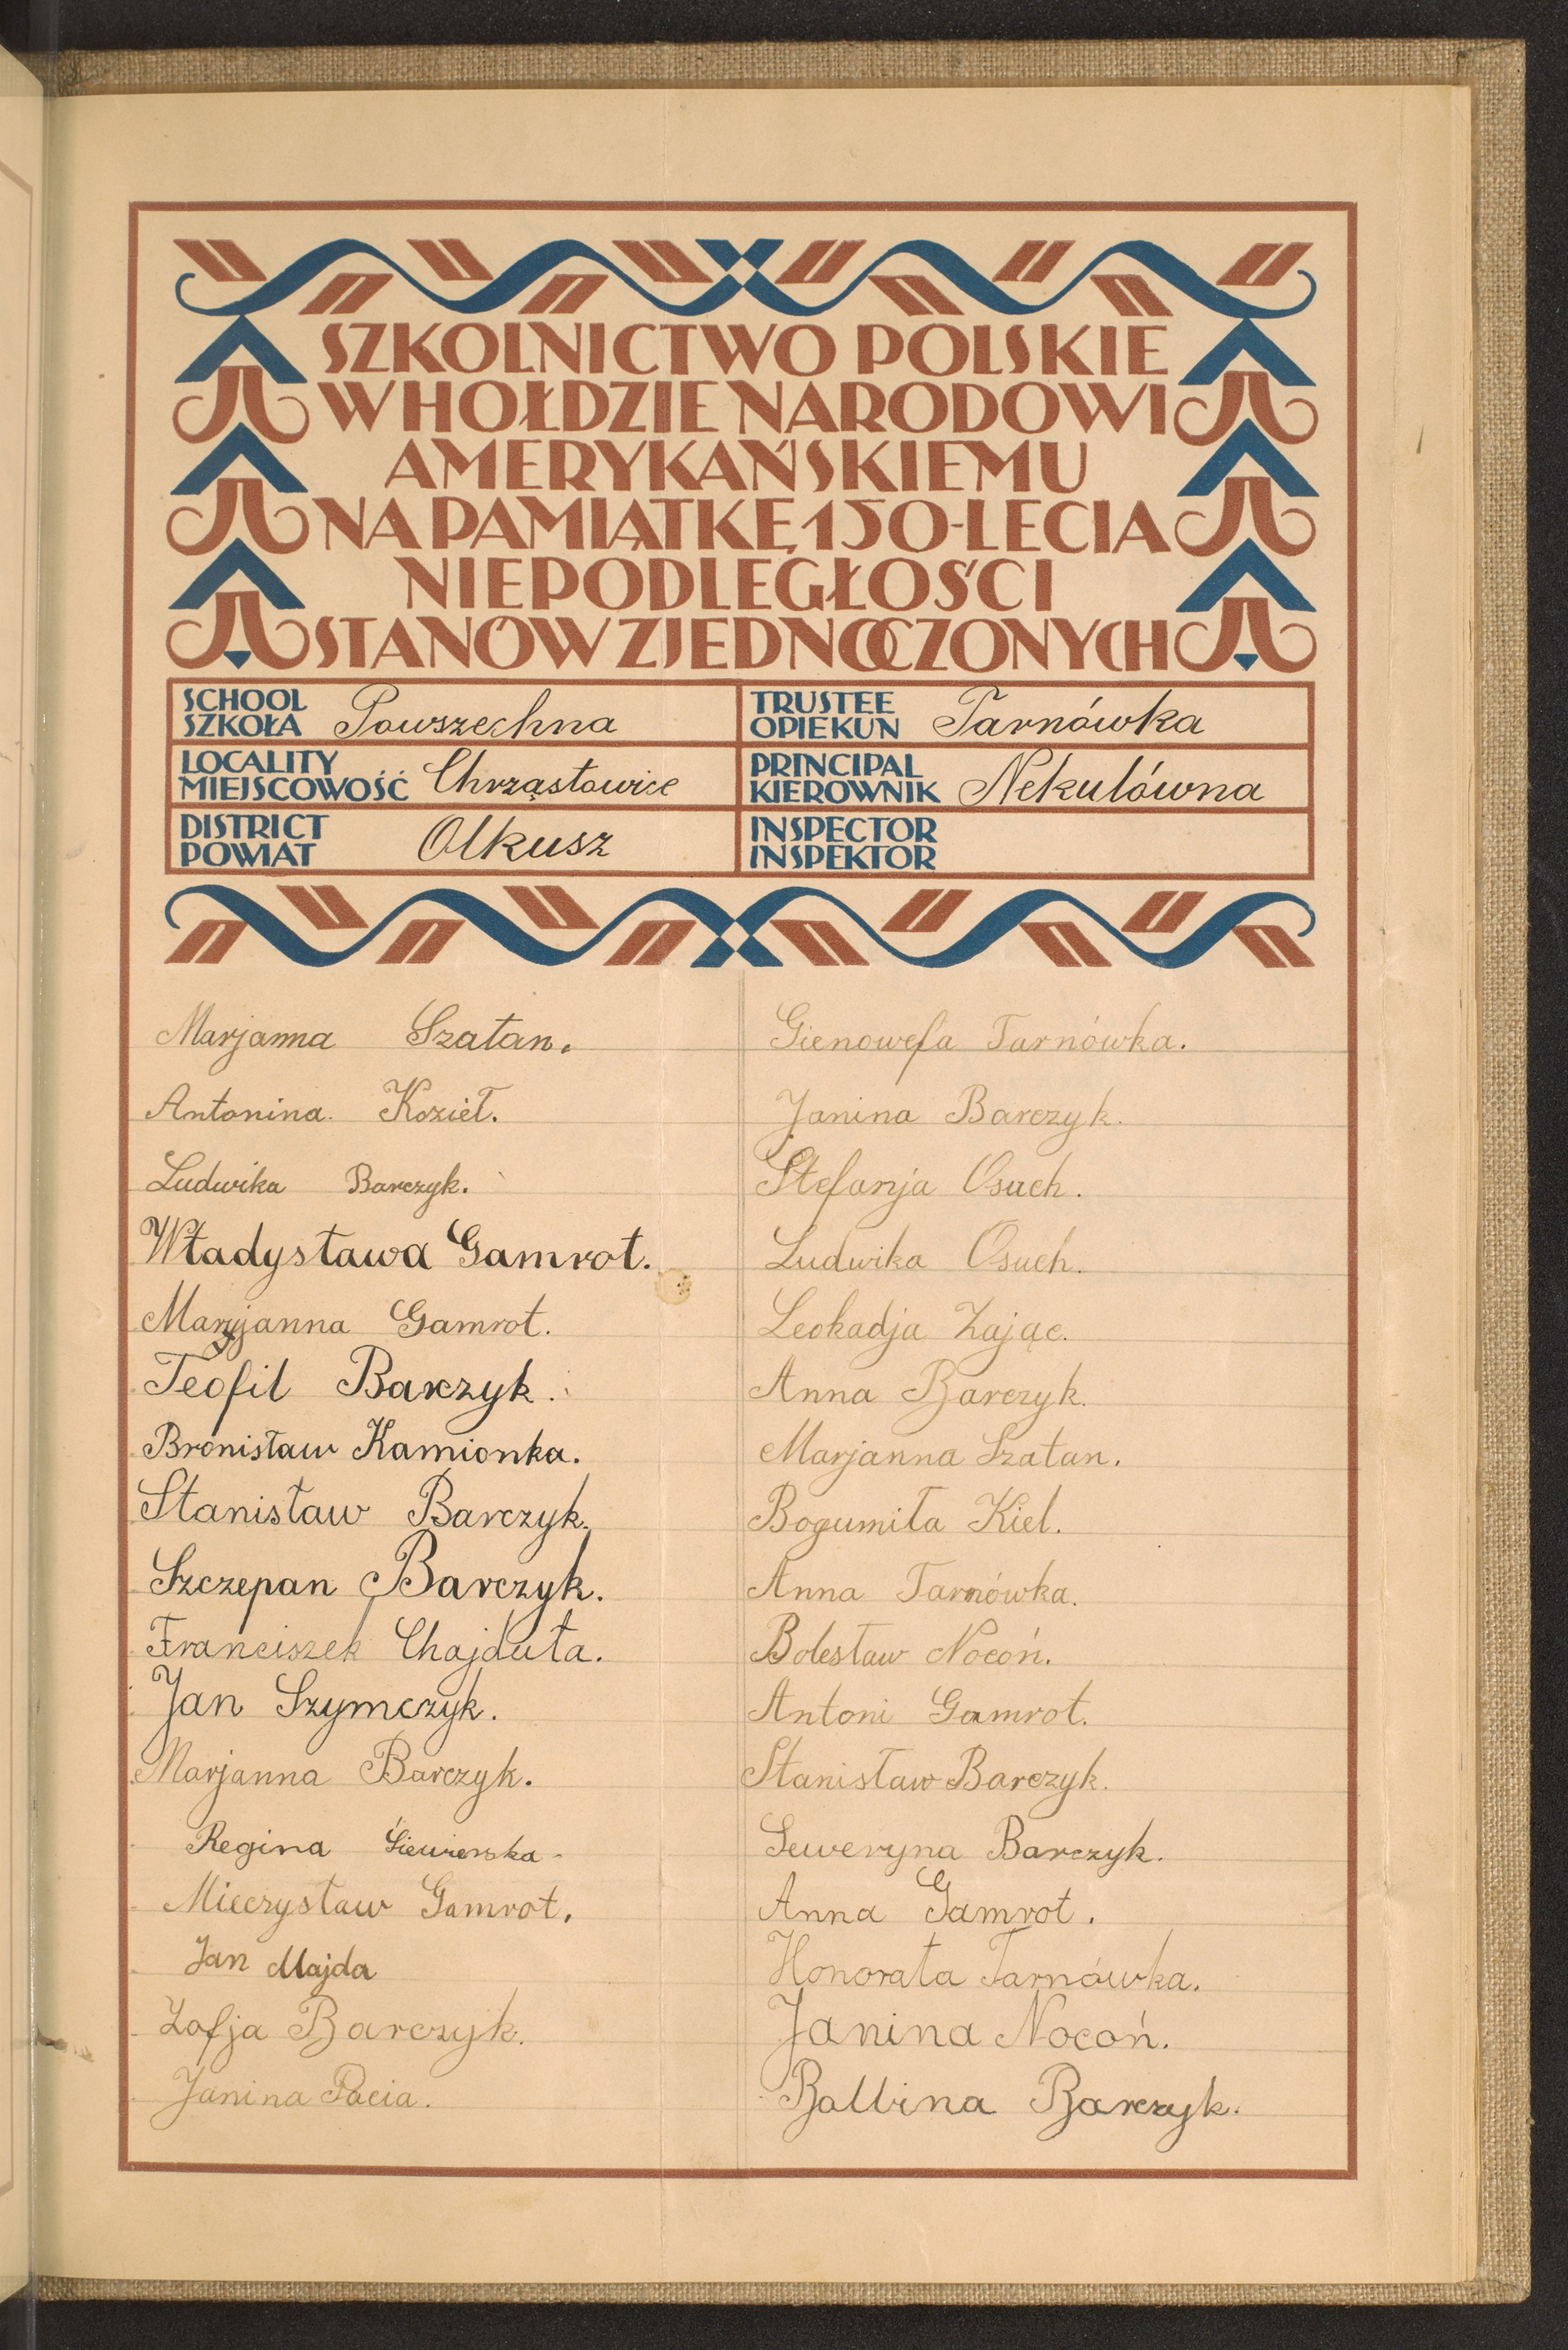 SZKOLNICTWO POLSKIE
W HOŁDZIE NARODOWI
AMERYKAŃSKIEMU
NA PAMIĄTKĘ 150-LECIA
NIEPODLEGŁOŚCI
STANÓW ZJEDNOCZONYCH
SCHOOL
SZKOŁA Powszechna
TRUSTEE
OPIEKUN Tarnówka
LOCALITY
MIEJSCOWOŚĆ Chrząstowice
PRINCIPAL
KIEROWNIK Nekulówna
DISTRICT
POWIAT Olkusz
INSPECTOR
INSPEKTOR
Marjanna Szatan.
Antonina Kozieł.
Ludwika Barczyk.
Władysława Gamrot.
Marjanna Gamrot.
Teofil Barczyk.
Bronisław Kamionka.
Stanisław Barczyk.
Szczepan Barczyk.
Franciszek Chajduła.
Jan Szymczyk.
Marjanna Barczyk.
Regina
Mieczysław Gamrot.
Jan Majda
Zofja Barczyk.
Janina Pacia.
Gienowefa Tarnówka.
Janina Barczyk.
Stefanja Osuch.
Ludwika Osuch.
Leokadja Zając.
Anna Barczyk.
Marjanna Szatan.
Bogumiła Kiel.
Anna Tarnówka.
Bolesław Nocoń.
Antoni Gamrot.
Stanisław Barczyk.
Seweryna Barczyk.
Anna Gamrot.
Honorata Tarnówka.
Janina Nocoń.
Balbina Barczyk.